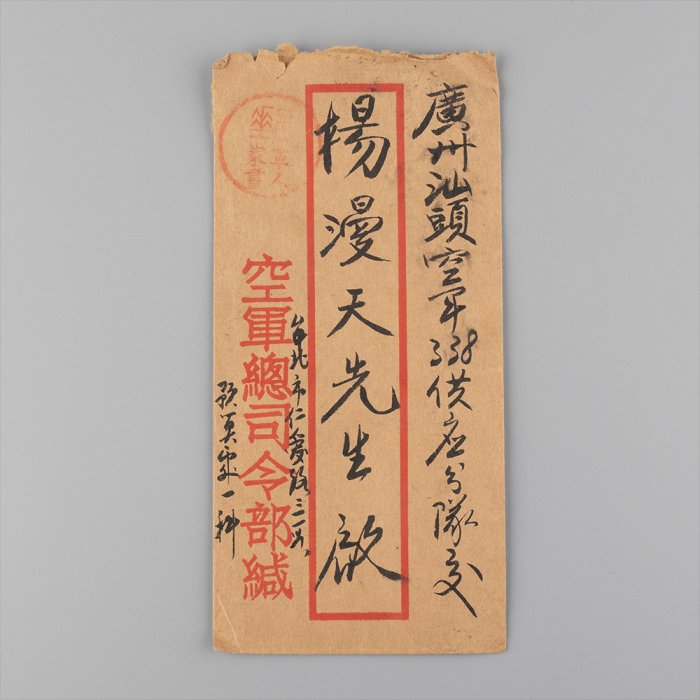 廣州汕頭空軍338供应分隊交
楊漫天先生啟
台北市仁愛路三
空軍總司令部緘
預算處一科